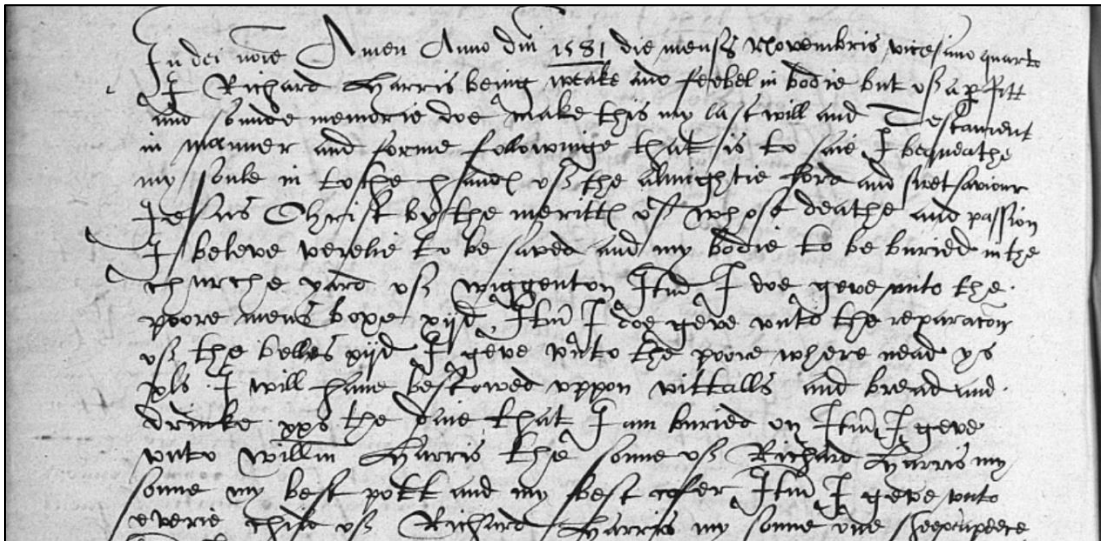 In dei noie Amen Anno dm 1581 die mensis Novembris vicesimo quarto
I Richard Harris being weake and feebel in bodie but of a pfitt
and sounde memorie doe make this my last will and Testament
in manner and forme followinge that is to saie I bequeathe
my soule in to the hands of the almightie Lord and swet saviour
Jesus Christ by the meritts of whose deathe and passion
I beleve verelie to be saved and my bodie to be buried in the
churche yard of wiggenton Itm I doe geve unto the
poore mens boxe xijd Itm I doe geve unto the reparacon
of the belles xijd I geve unto the poore where nead ys
xls I will have bestowed uppon vittalls and bread and
drinke xxs the daie that I am buried on Itm I geve
unto willm Harris the sonne of Richard Harris my
sonne my best pott and my best cofer Itm I geve unto
everie child of Richard Harris my sonne one sheep upeece